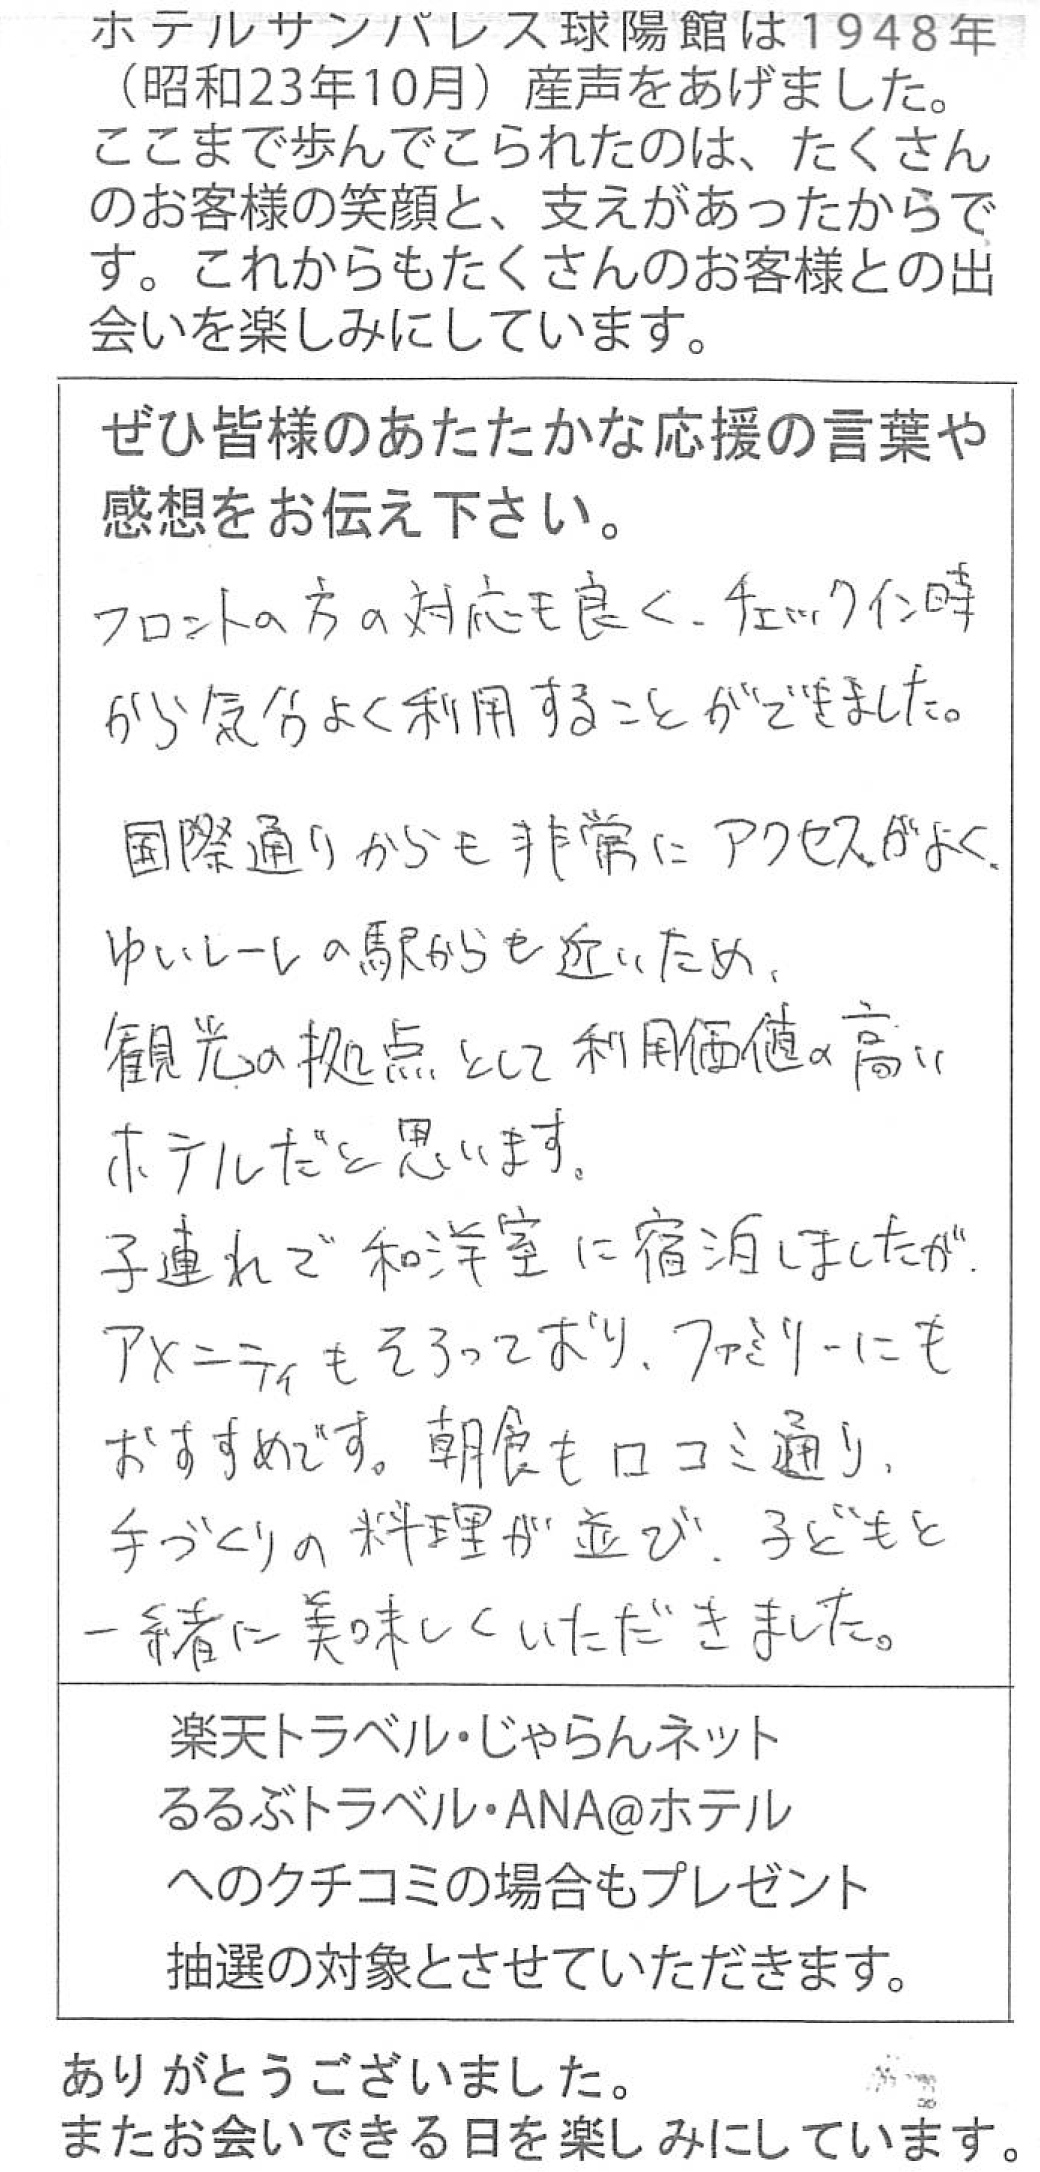 ホテルサンパレス球陽館は1948年
（昭和23年10月）産声をあげました。
ここまで歩んでこられたのは、たくさん
のお客様の笑顔と、支えがあったからで
す。これからもたくさんのお客様との出
会いを楽しみにしています。
ぜひ皆様のあたたかな応援の言葉や
感想をお伝え下さい。
フロントの方の対応も良く、チェックイン時
から気分よく利用することができました。
国際通りからも非常にアクセスがよく、
ゆいレールの駅からも近いため、
観光の拠点として利用価値の高い
ホテルだと思います。
子連れで和洋室に宿泊しましたが、
アメニティもそろっており、ファミリーにも
おすすめです。朝食も口コミ通り、
手づくりの料理が並び、子どもと
一緒に美味しくいただきました。
楽天トラベル・じゃらんネット
るるぶトラベル・ANA@ホテル
へのクチコミの場合もプレゼント
抽選の対象とさせていただきます。
ありがとうございました。
またお会いできる日を楽しみにしています。